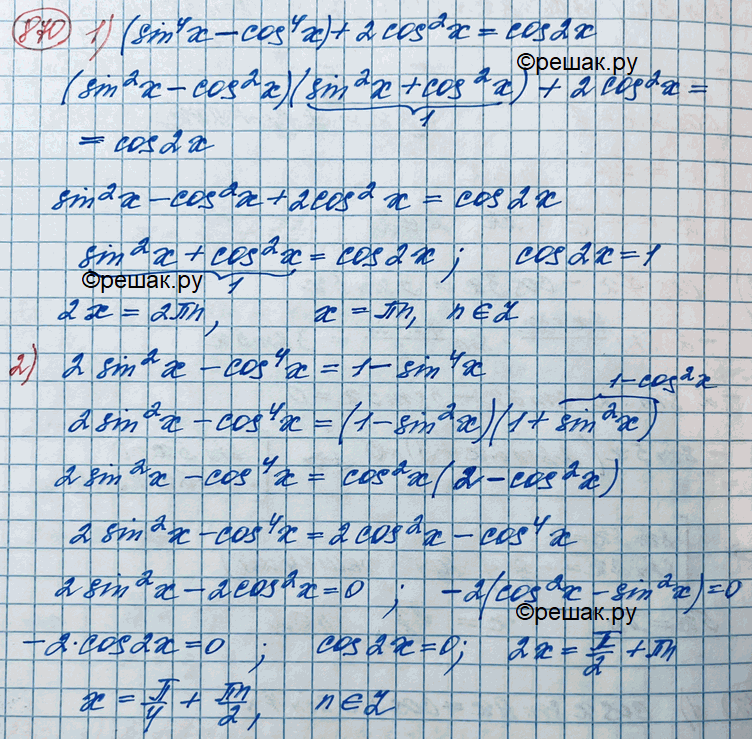 870 1) (sin⁴x − cos⁴x) + 2cos²x = cos2x
©решак.ру
(sin²x − cos²x)(sin²x + cos²x) + 2cos²x =
1
= cos2x
sin²x − cos²x + 2cos²x = cos2x
sin²x + cos²x = cos2x ; cos2x = 1
©решак.ру 1
2x = 2πn, x = πn, n ∈ Z
2) 2sin²x − cos⁴x = 1 − sin⁴x
1 − cos²x
2sin²x − cos⁴x = (1 − sin²x)(1 + sin²x)
2sin²x − cos⁴x = cos²x(2 − cos²x)
2sin²x − cos⁴x = 2cos²x − cos⁴x
2sin²x − 2cos²x = 0 ; −2(cos²x − sin²x) = 0
©решак.ру
−2·cos2x = 0 ; cos2x = 0; 2x = π/2 + πn
x = π/4 + πn/2, n ∈ Z